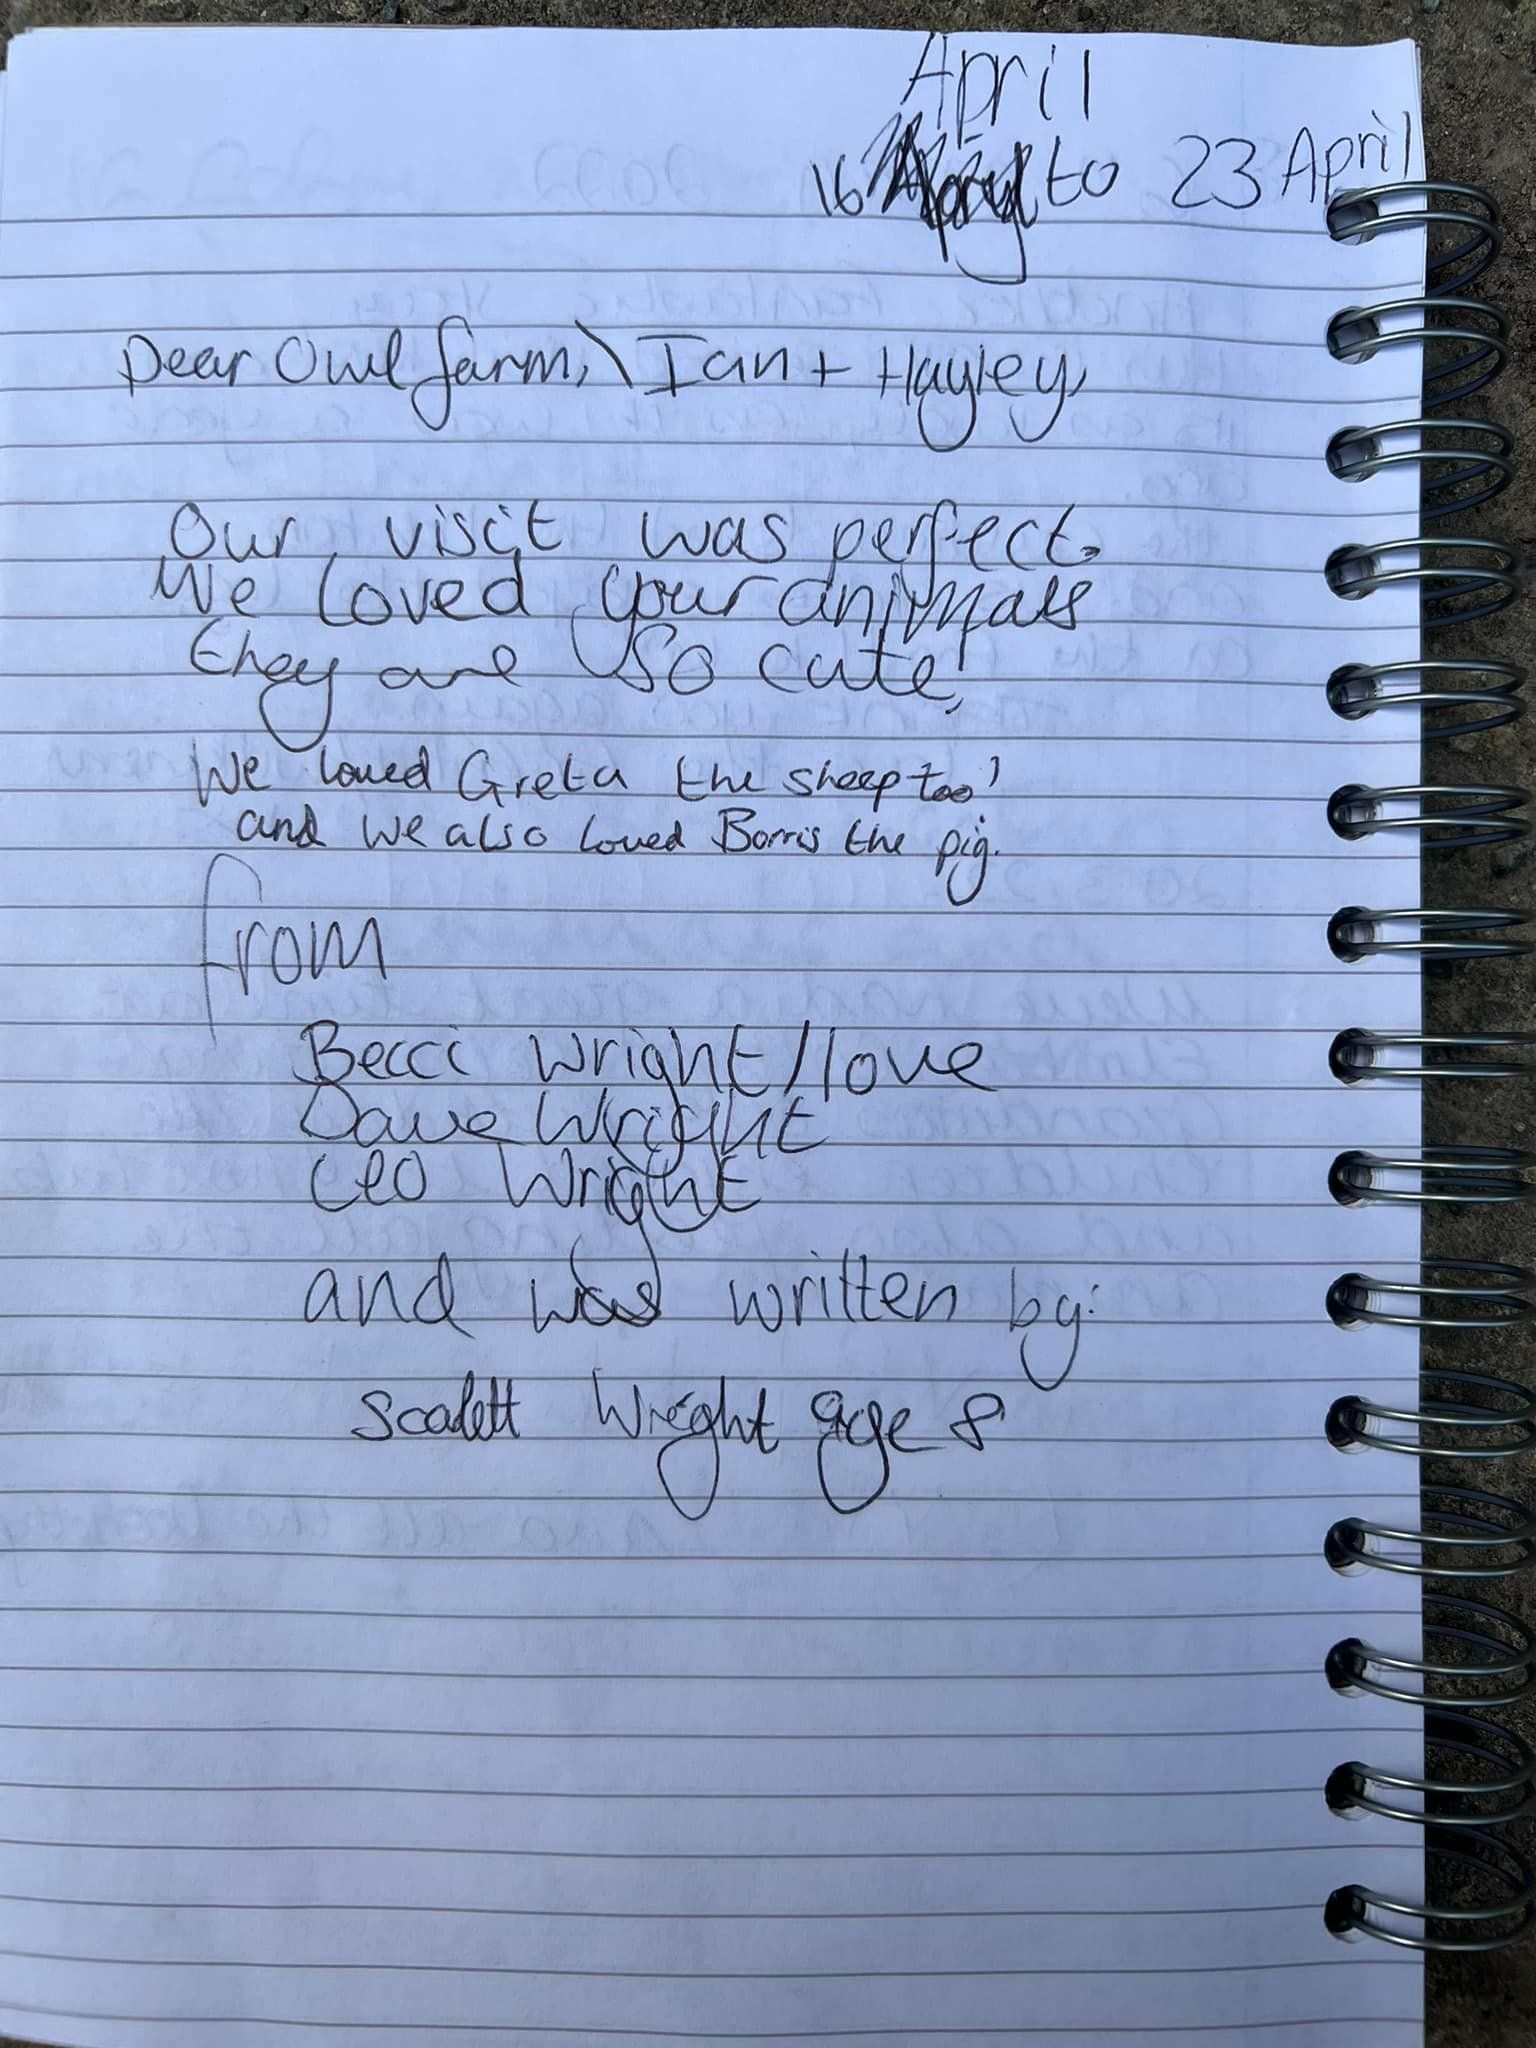 April
16 to 23 April
Dear Owl farm, \ Ian + Hayley,
Our visit was perfect.
We loved your animals
they are so cute,
We loved Greta the sheep too!
and we also loved Borris the pig.
from
Becci Wright/love
Dave Wright
Leo Wright
and was written by:
Scalett Wright age 8